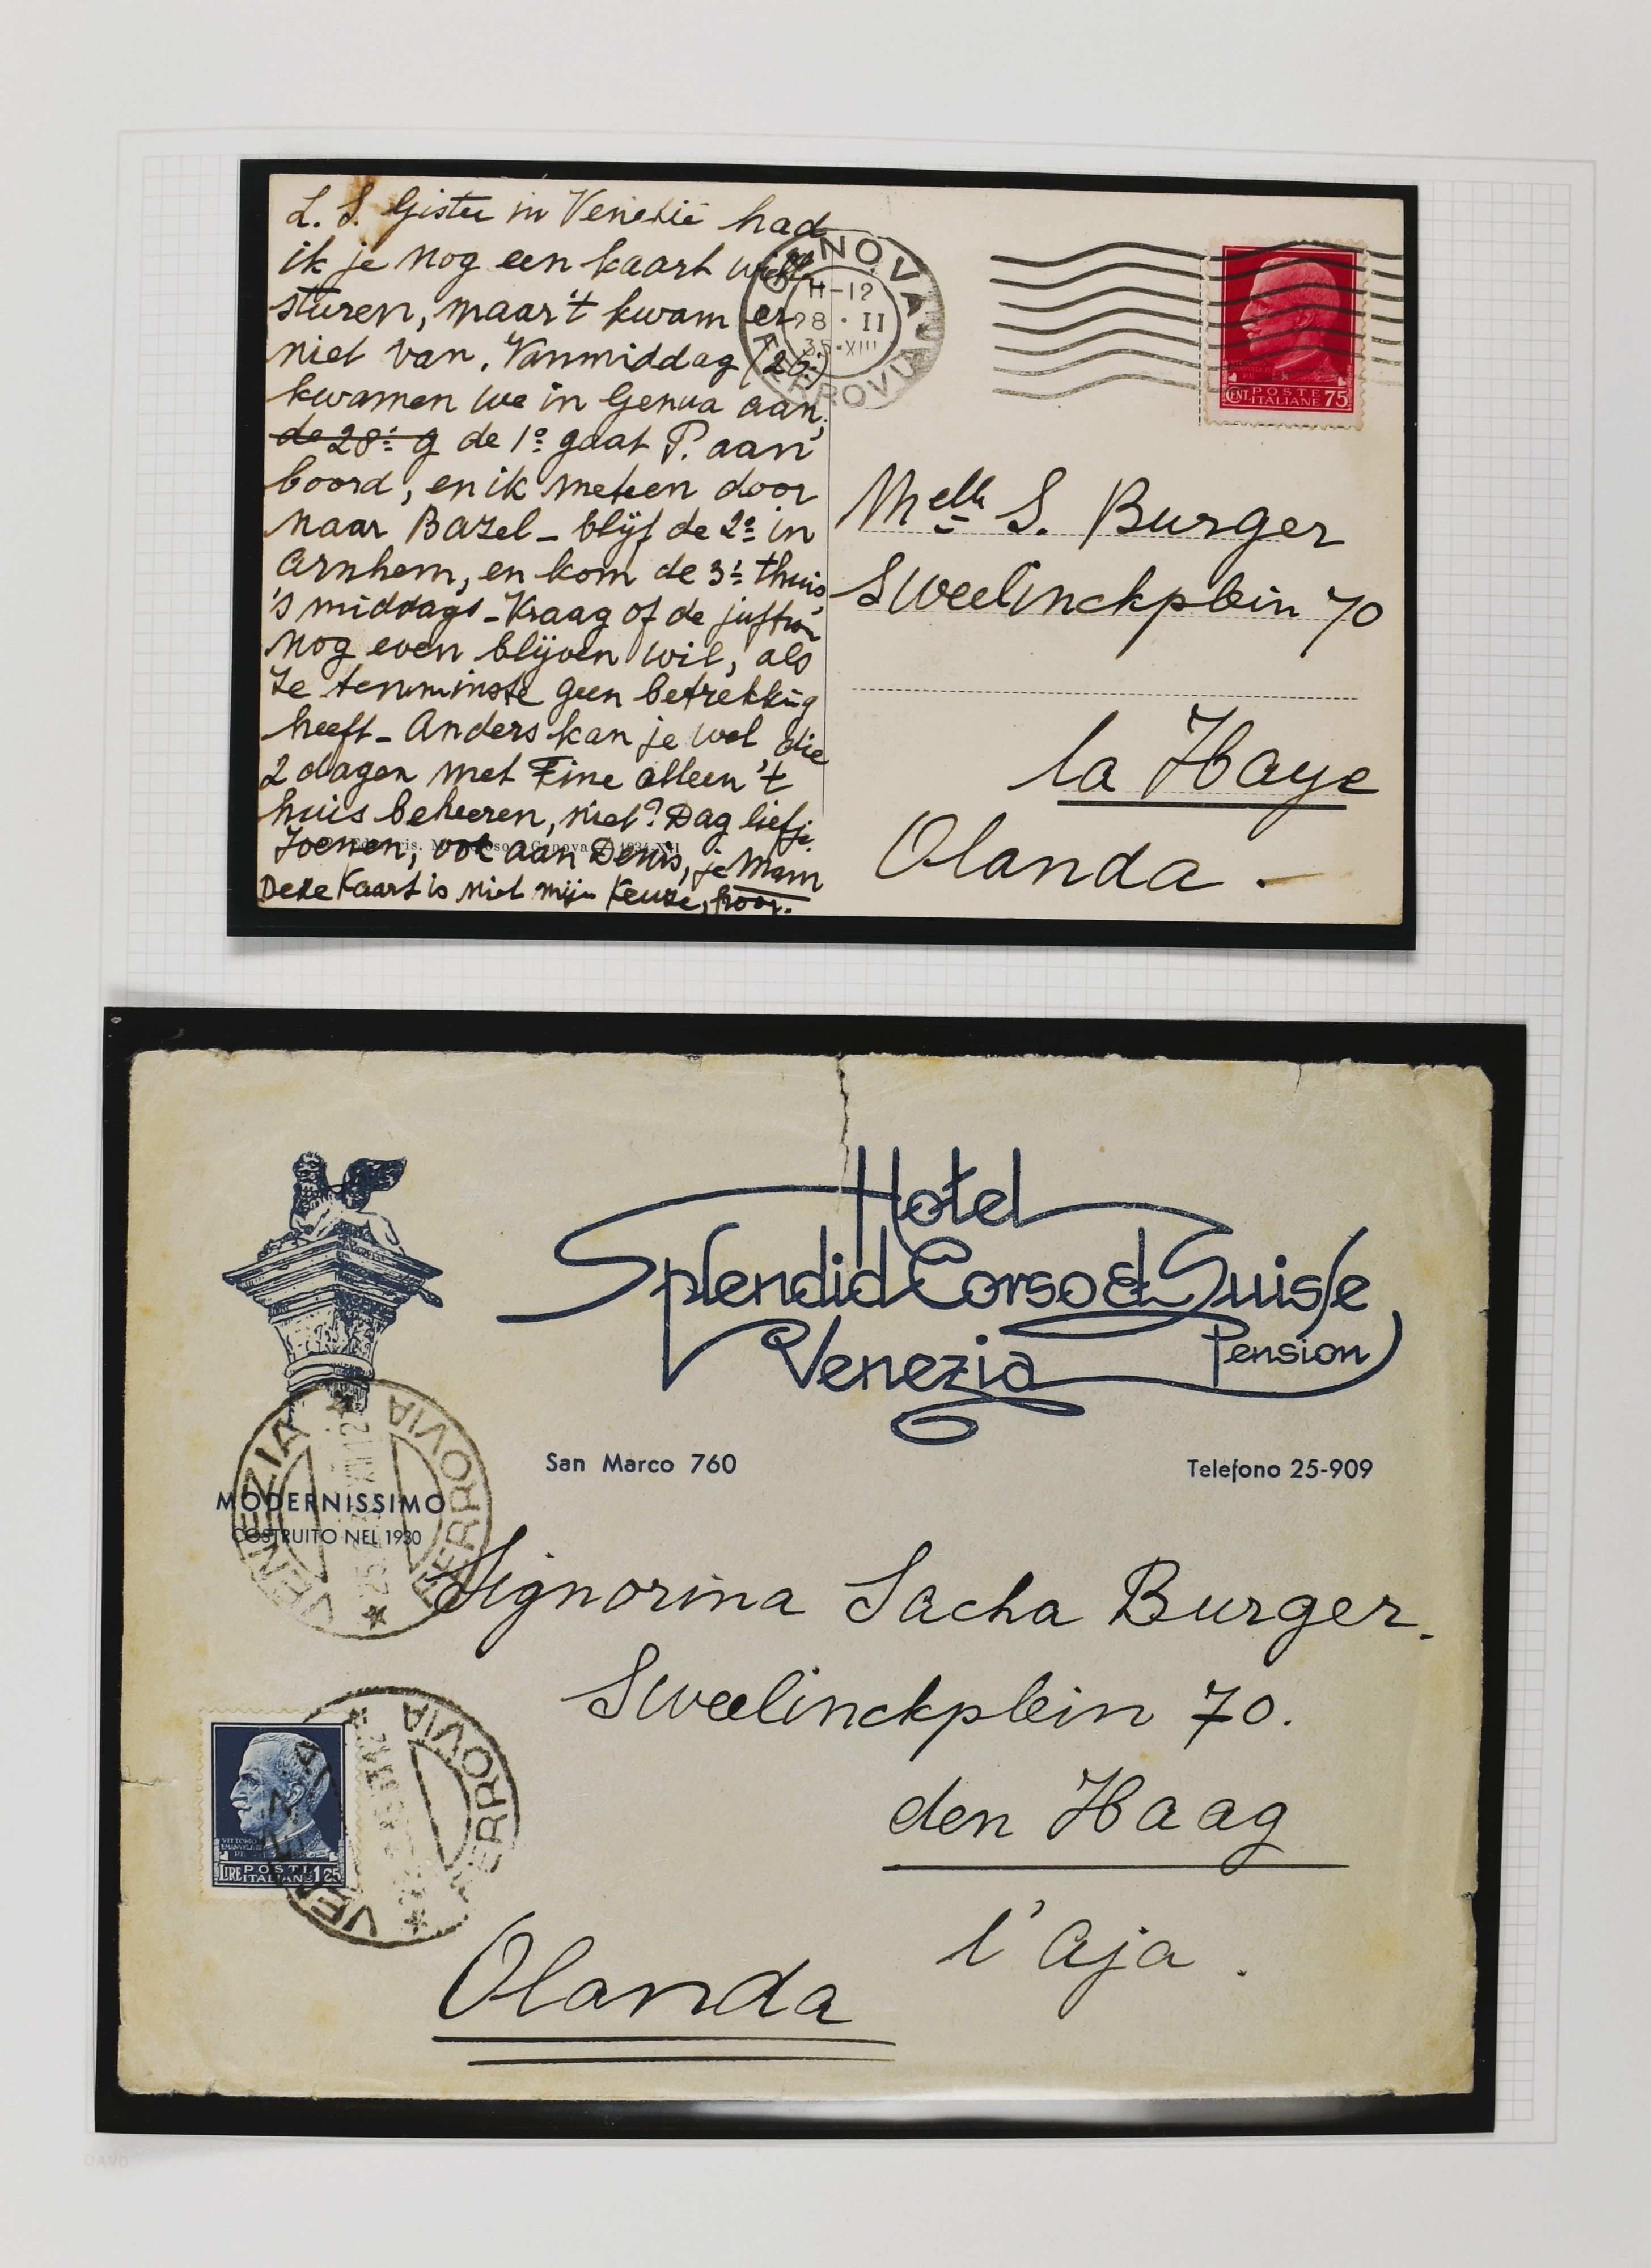 L. S. Gister in Venetië had
ik je nog een kaart
sturen, maar 't kwam er
niet van. Vanmiddag (26:)
kwamen we in Genua aan,
de 28: g de 1º gaat P. aan
boord, en ik meteen door
naar Bazel - blijf de 2º in
Arnhem, en kom de 3: thuis
's middags - Vraag of de juffrouw
nog even blijven wil, als
ze tenminste geen betrekking
heeft - Anders kan je wel die
2 dagen met Fine alleen 't
huis beheeren, niet? Dag liefje
Zoenen, ook aan Denis, je Mam
Deze Kaart is niet mijn Keuze, hoor.
GENOVA
FERROVIA
11-12
28 · II
35 · XIII
CENT. POSTE ITALIANE 75
Melle S. Burger
Sweelinckplein 70
la Haye
Olanda.-
Hotel
Splendid Corso & Suisse
Venezia
Pension
San Marco 760
Telefono 25-909
MODERNISSIMO
COSTRUITO NEL 1930
VENEZIA
FERROVIA
Signorina Sacha Burger.
Sweelinckplein 70.
den Haag
l'Aja.
Olanda
VITTORIO
EMANUELE III
RE
LIRE POSTE ITALIANE 1,25
VENEZIA
FERROVIA
DAVO